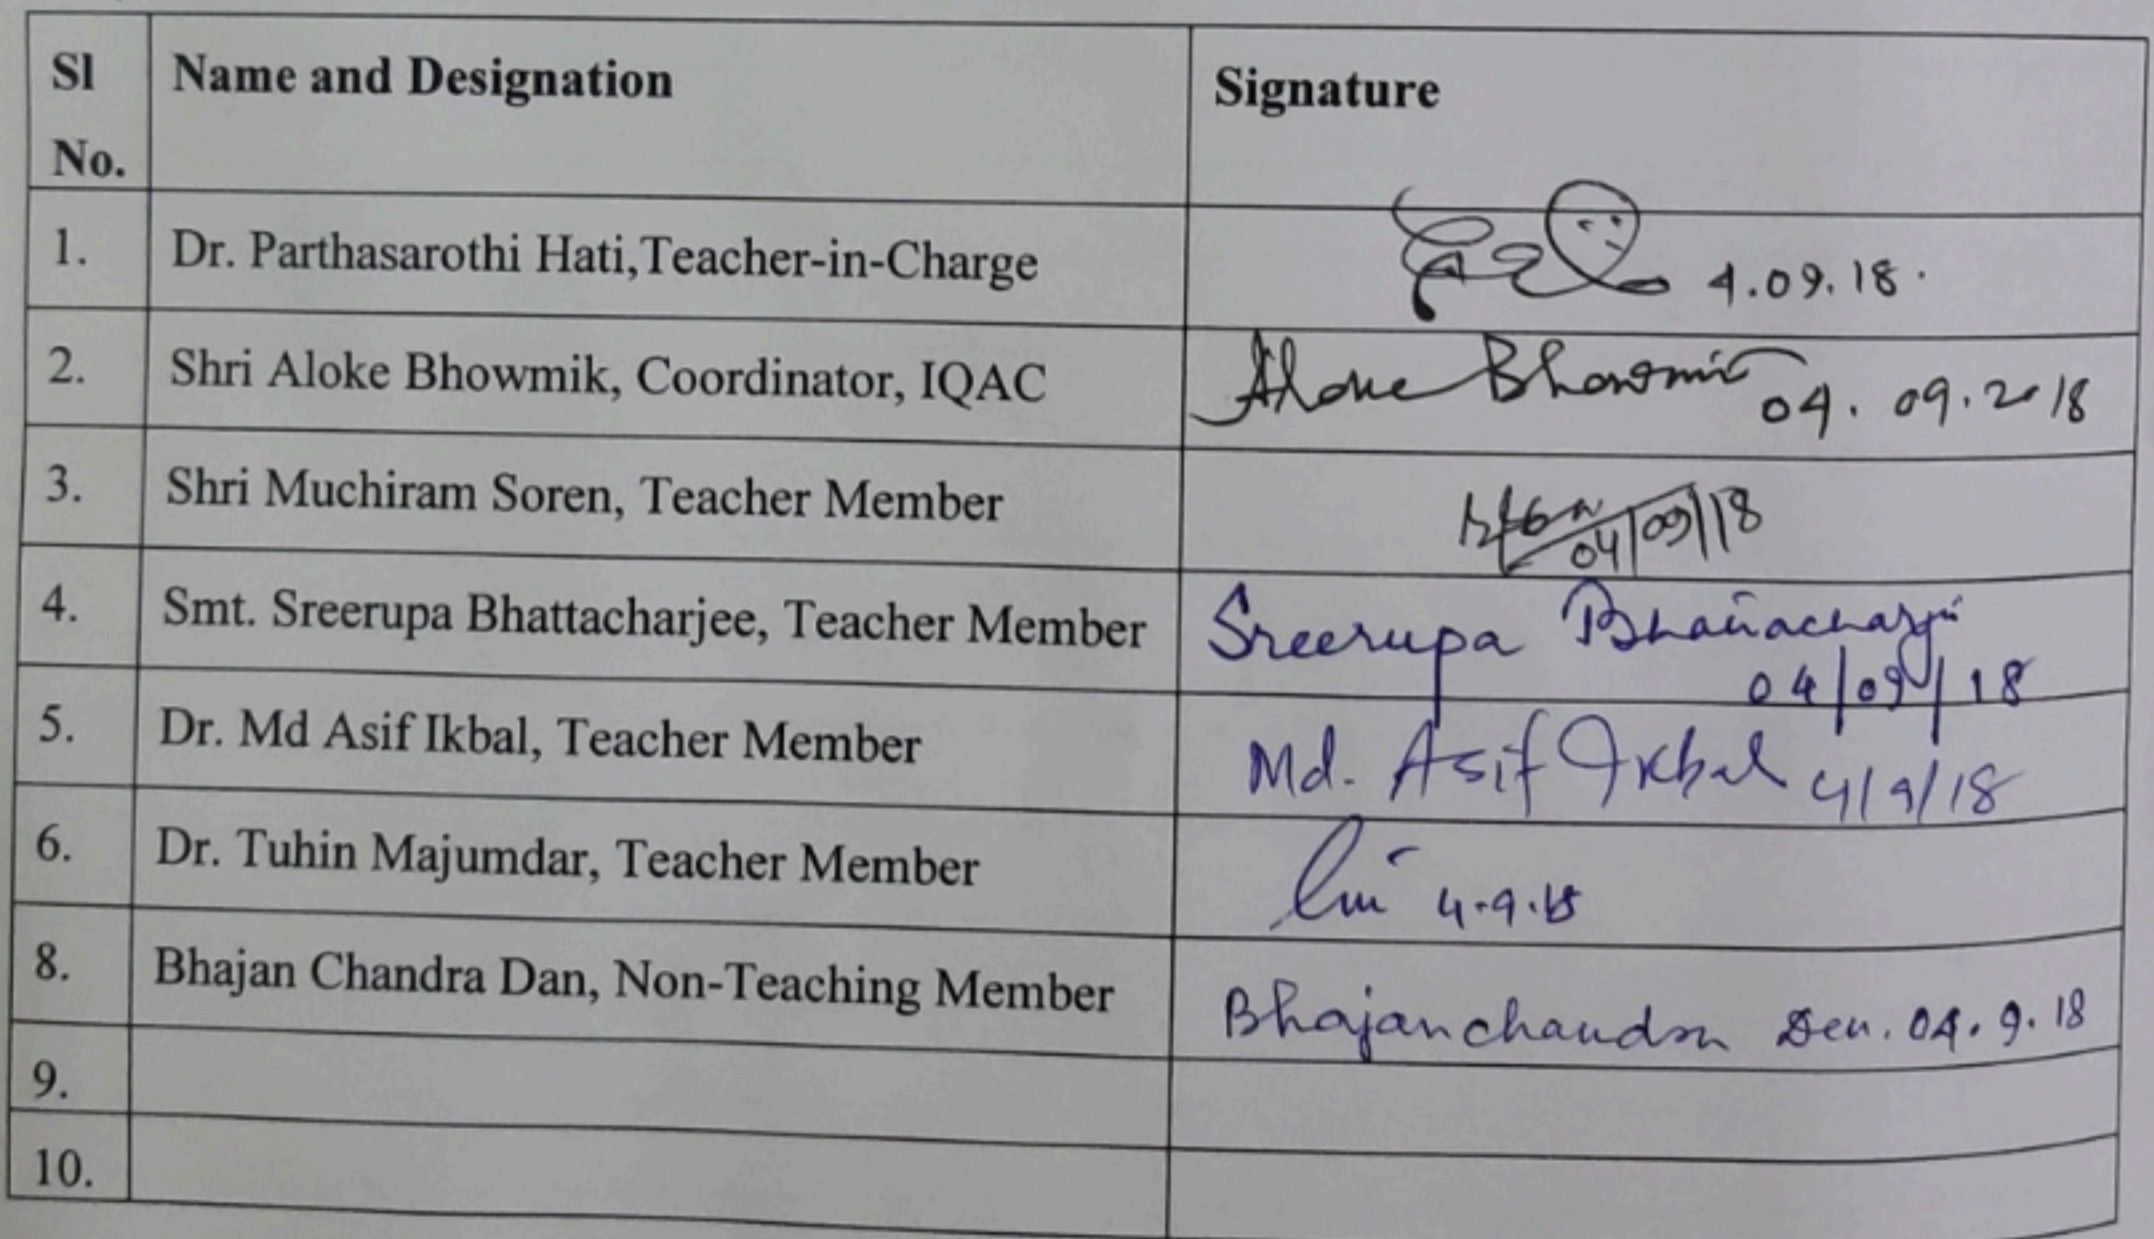 Sl No. Name and Designation Signature
1. Dr. Parthasarothi Hati,Teacher-in-Charge 4.09.18.
2. Shri Aloke Bhowmik, Coordinator, IQAC Aloke Bhowmik 04.09.2018
3. Shri Muchiram Soren, Teacher Member 04/09/18
4. Smt. Sreerupa Bhattacharjee, Teacher Member Sreerupa Bhattacharjee
04/09/18
5. Dr. Md Asif Ikbal, Teacher Member Md. Asif Ikbal 4/9/18
6. Dr. Tuhin Majumdar, Teacher Member 4.9.18
8. Bhajan Chandra Dan, Non-Teaching Member Bhajan chandra Den. 04.9.18
9.
10.